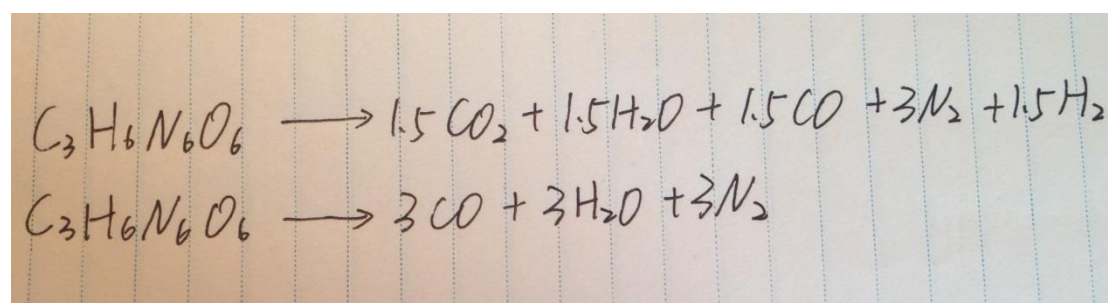 C₃H₆N₆O₆ ⟶ 1.5CO₂ + 1.5H₂O + 1.5CO + 3N₂ + 1.5H₂
C₃H₆N₆O₆ ⟶ 3CO + 3H₂O + 3N₂